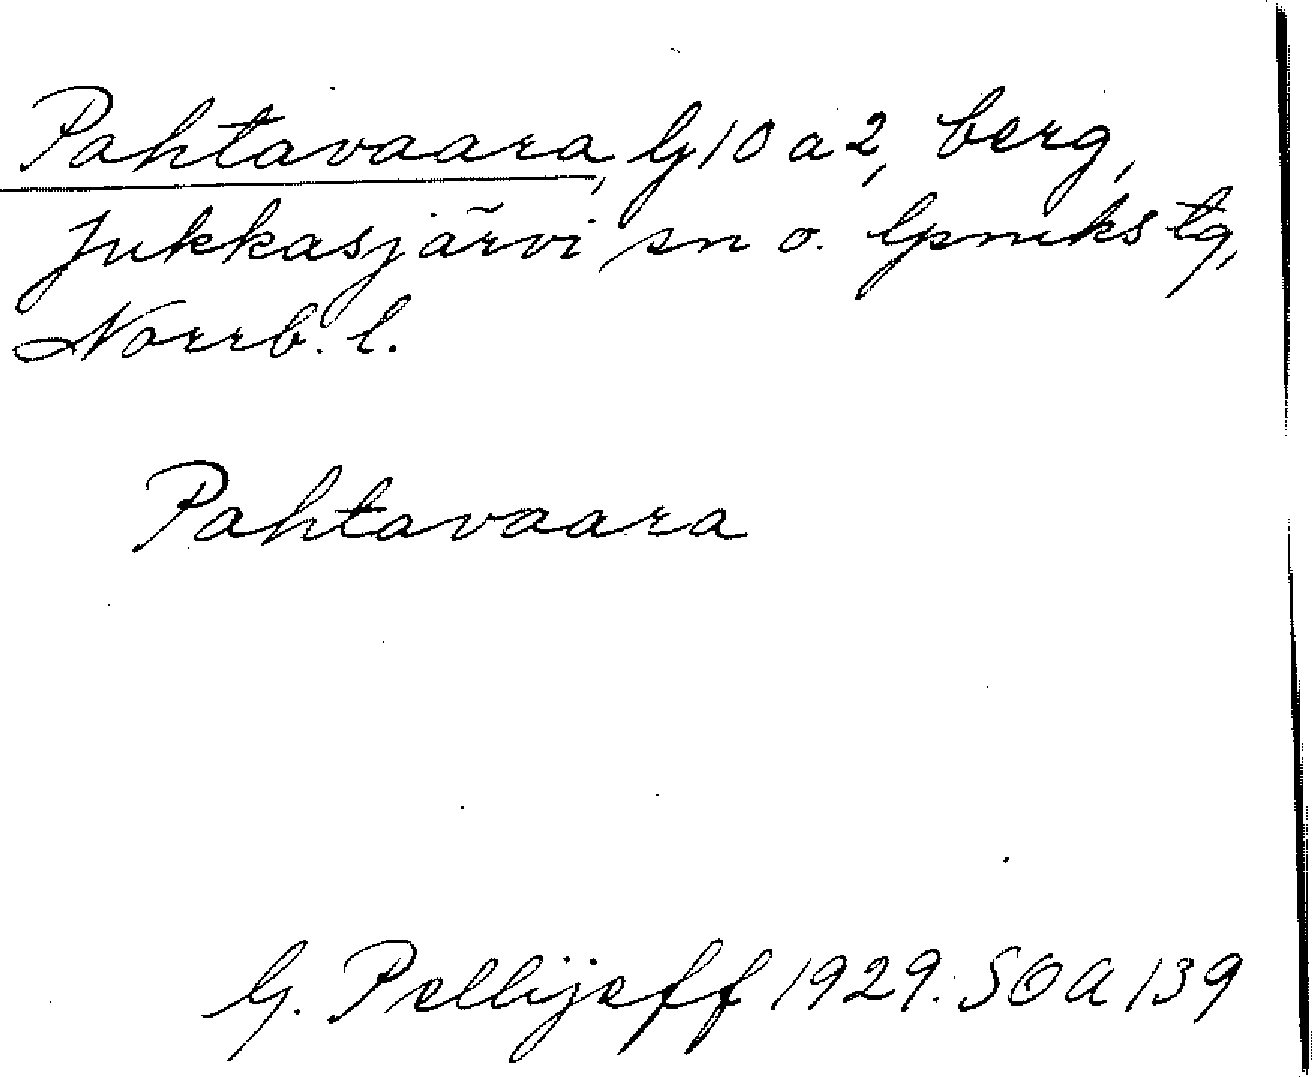 Pahtavaara, G10a2, berg,
Jukkasjärvi sn o. lpmkstg,
Norrb. l.
Pahtavaara
G. Pellijeff 1929. SOA 139